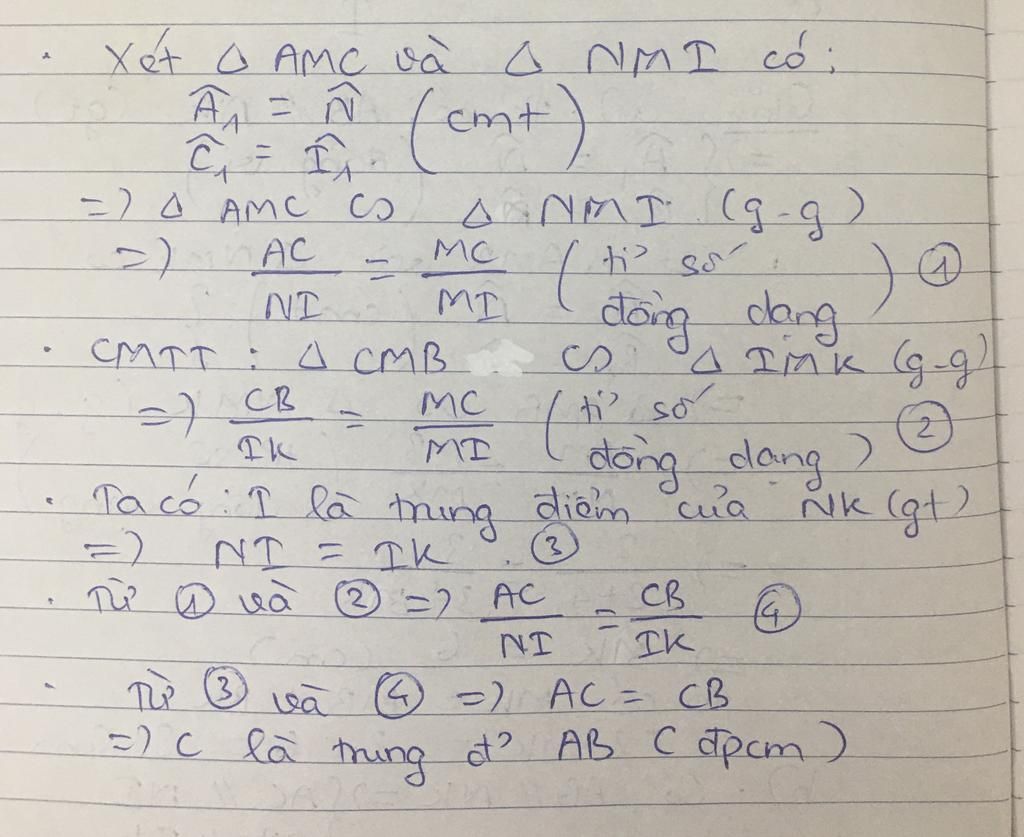 · Xét Δ AMC và Δ NMI có:
Â₁ = N̂ (cmt)
Ĉ₁ = Î₁
=> Δ AMC ∽ Δ NMI (g-g)
=> AC/NI = MC/MI (tỉ số đồng dạng) ①
· CMTT: Δ CMB ∽ Δ IMK (g-g)
=> CB/IK = MC/MI (tỉ số đồng dạng) ②
· Ta có: I là trung điểm của NK (gt)
=> NI = IK. ③
· Từ ① và ② => AC/NI = CB/IK ④
· Từ ③ và ④ => AC = CB
=> C là trung đ' AB (đpcm)